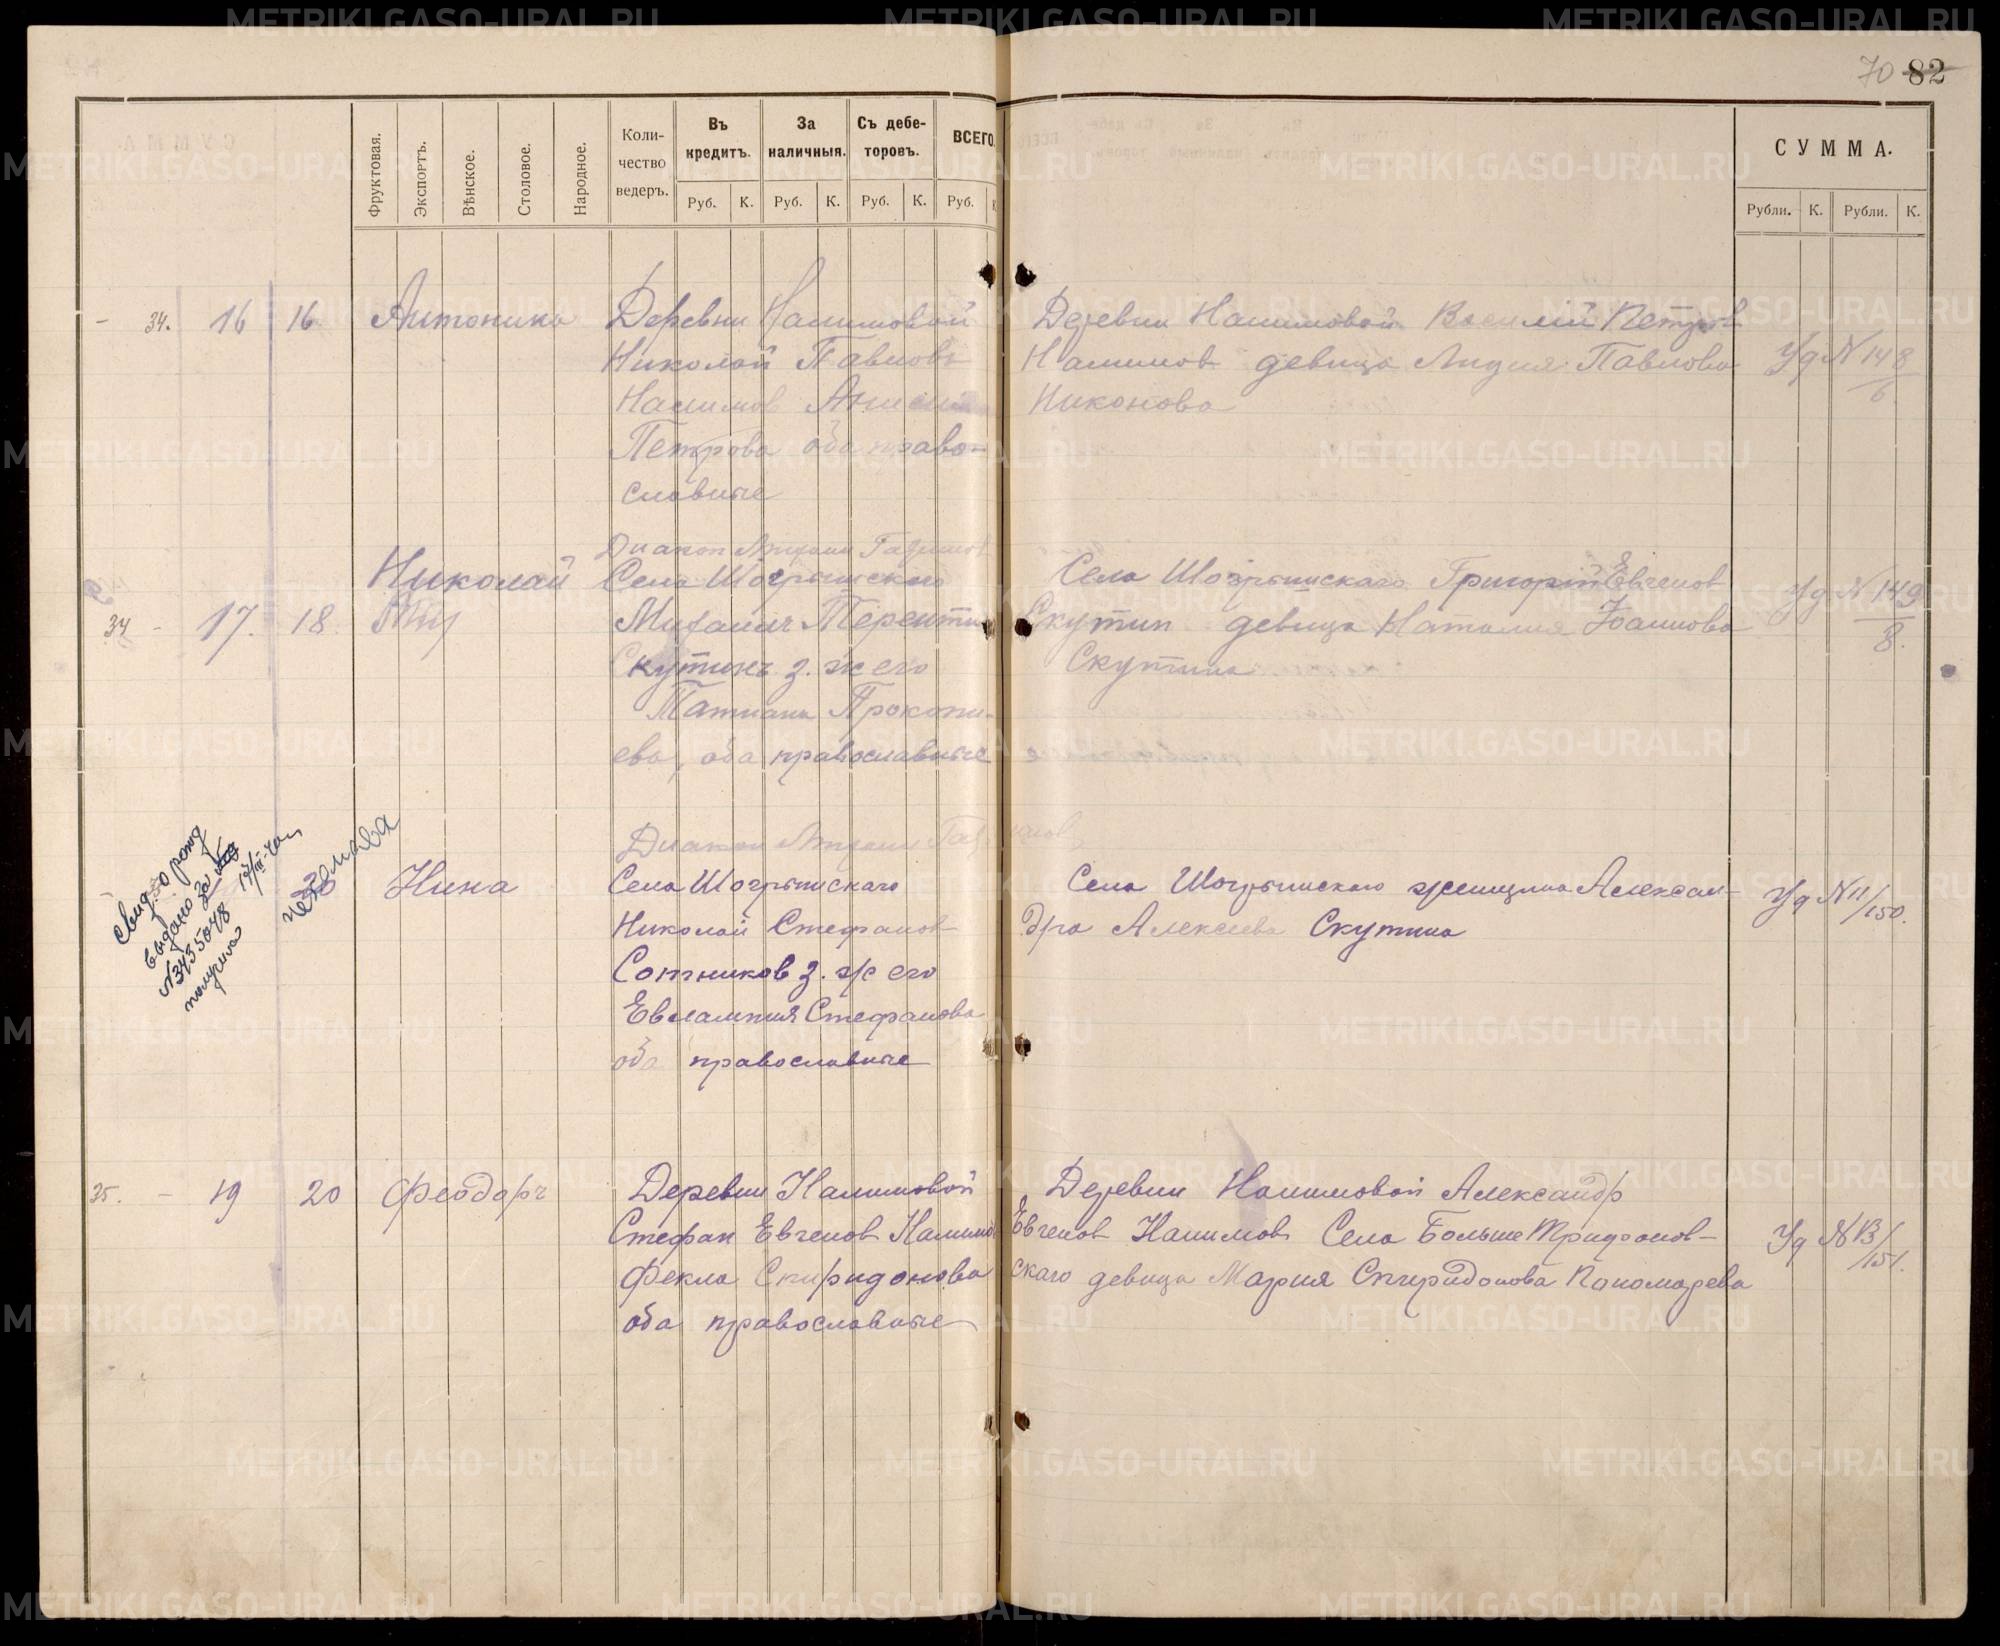 70 82
Фруктовая.
Экспортъ.
Вѣнское.
Столовое.
Народное.
Коли-
чество
ведеръ.
Въ
кредитъ.
За
наличныя.
Съ дебе-
торовъ.
ВСЕГО.
Руб. К. Руб. К. Руб. К. Руб.
СУММА.
Рубли. К. Рубли. К.
- 34. 16 16 Антонина
Деревни Налимовой
Николай Павловъ
Налимов
Петрова оба право-
славные
Деревни Налимовой Василий Петров
Налимов девица Лидия Павлова
Никонова
Уд N 148/6
34 - 17. 18. Николай
Диакон
Села Шогрышскаго
Михаилъ Терентив
Скутинъ з. ж его
Татиана Прокопи-
ева, оба православные
Села Шогрышскаго Григорий Евгенов
Скутин девица Наталия Иоаннова
Скутина
Уд N 149/8.
Свид. о рожд
выдано за
N 3435048
получила
20 Нина
Диакон
Села Шогрышскаго
Николай Стефанов
Сотников з. ж его
Евлампия Стефанова
оба православные
Села Шогрышскаго женщина Алексан-
дра Алексеева Скутина
Уд N 11/150.
35. - 19 20 Феодоръ
Деревни Налимовой
Стефан Евгенов Налимов
Фекла Спиридонова
оба православные
Деревни Налимовой Александр
Евгенов Налимов Села Больше Трифонов-
скаго девица Мария Спиридонова Пономарева
Уд N 13/151.
METRIKI.GASO-URAL.RU